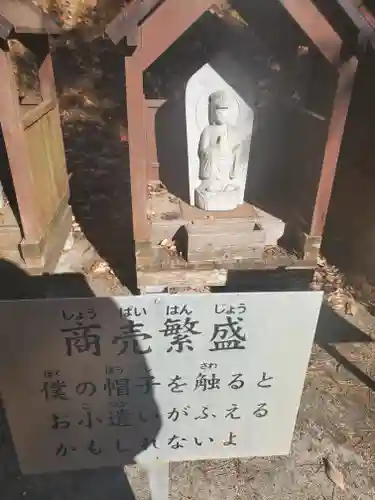 しょう ばい はん じょう
商売繁盛
ぼく ぼうし さわ
僕の帽子を触ると
こづか
お小遣いがふえる
かもしれないよ